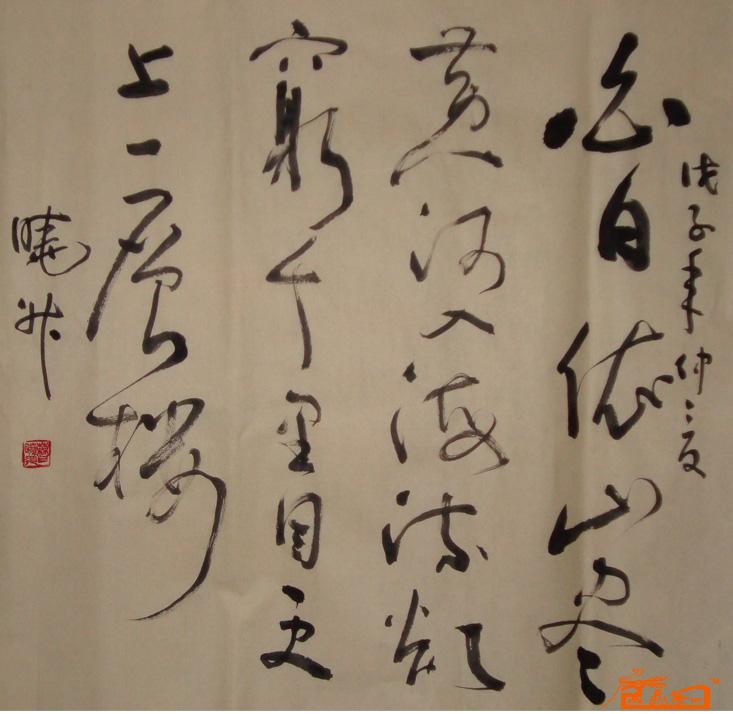 戊子年仲夏
白日依山尽
黄河入海流欲
窮千里目更
上一層樓
曉